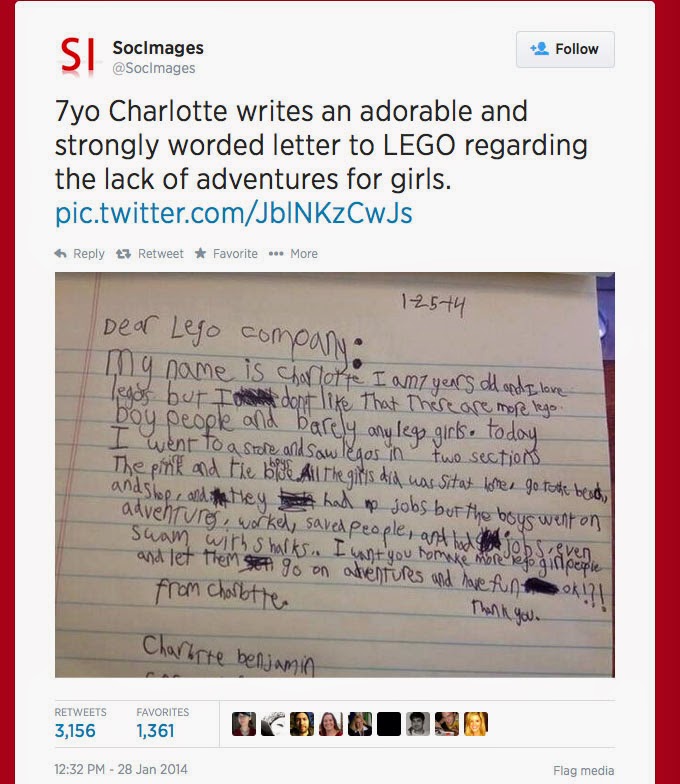 SI
SocImages
@SocImages
Follow
7yo Charlotte writes an adorable and
strongly worded letter to LEGO regarding
the lack of adventures for girls.
pic.twitter.com/JblNKzCwJs
Reply Retweet Favorite More
1-25-14
Dear Lego company:
My name is Charlotte I am 7 years old and I love
legos but I dont like That There are more lego
boy people and barely any lego girls. today
I went to a store and saw legos in two sections
The pink girls and the blue boys All The girls did was sit at home, go to the beach,
and shop, and they had no jobs but the boys went on
adventures, worked, saved people, and had jobs, even
swam with sharks.. I want you to make more lego girl people
and let them go on adventures and have fun ok!?!
from Charlotte.
Thank you.
Charlotte benjamin
RETWEETS
3,156
FAVORITES
1,361
12:32 PM - 28 Jan 2014
Flag media